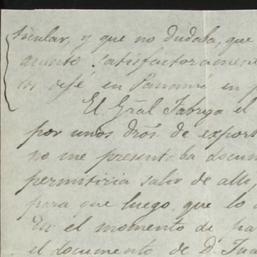 ticular, y que no dudaba, que
asunto satisfactoriamen
en Panamá en
El Gral Fabrega el
por unos dros de expor
no me presentaba docum
permitiria salir de alli
para que luego, que lo
En el momento de pa
el documento de Dn Jua